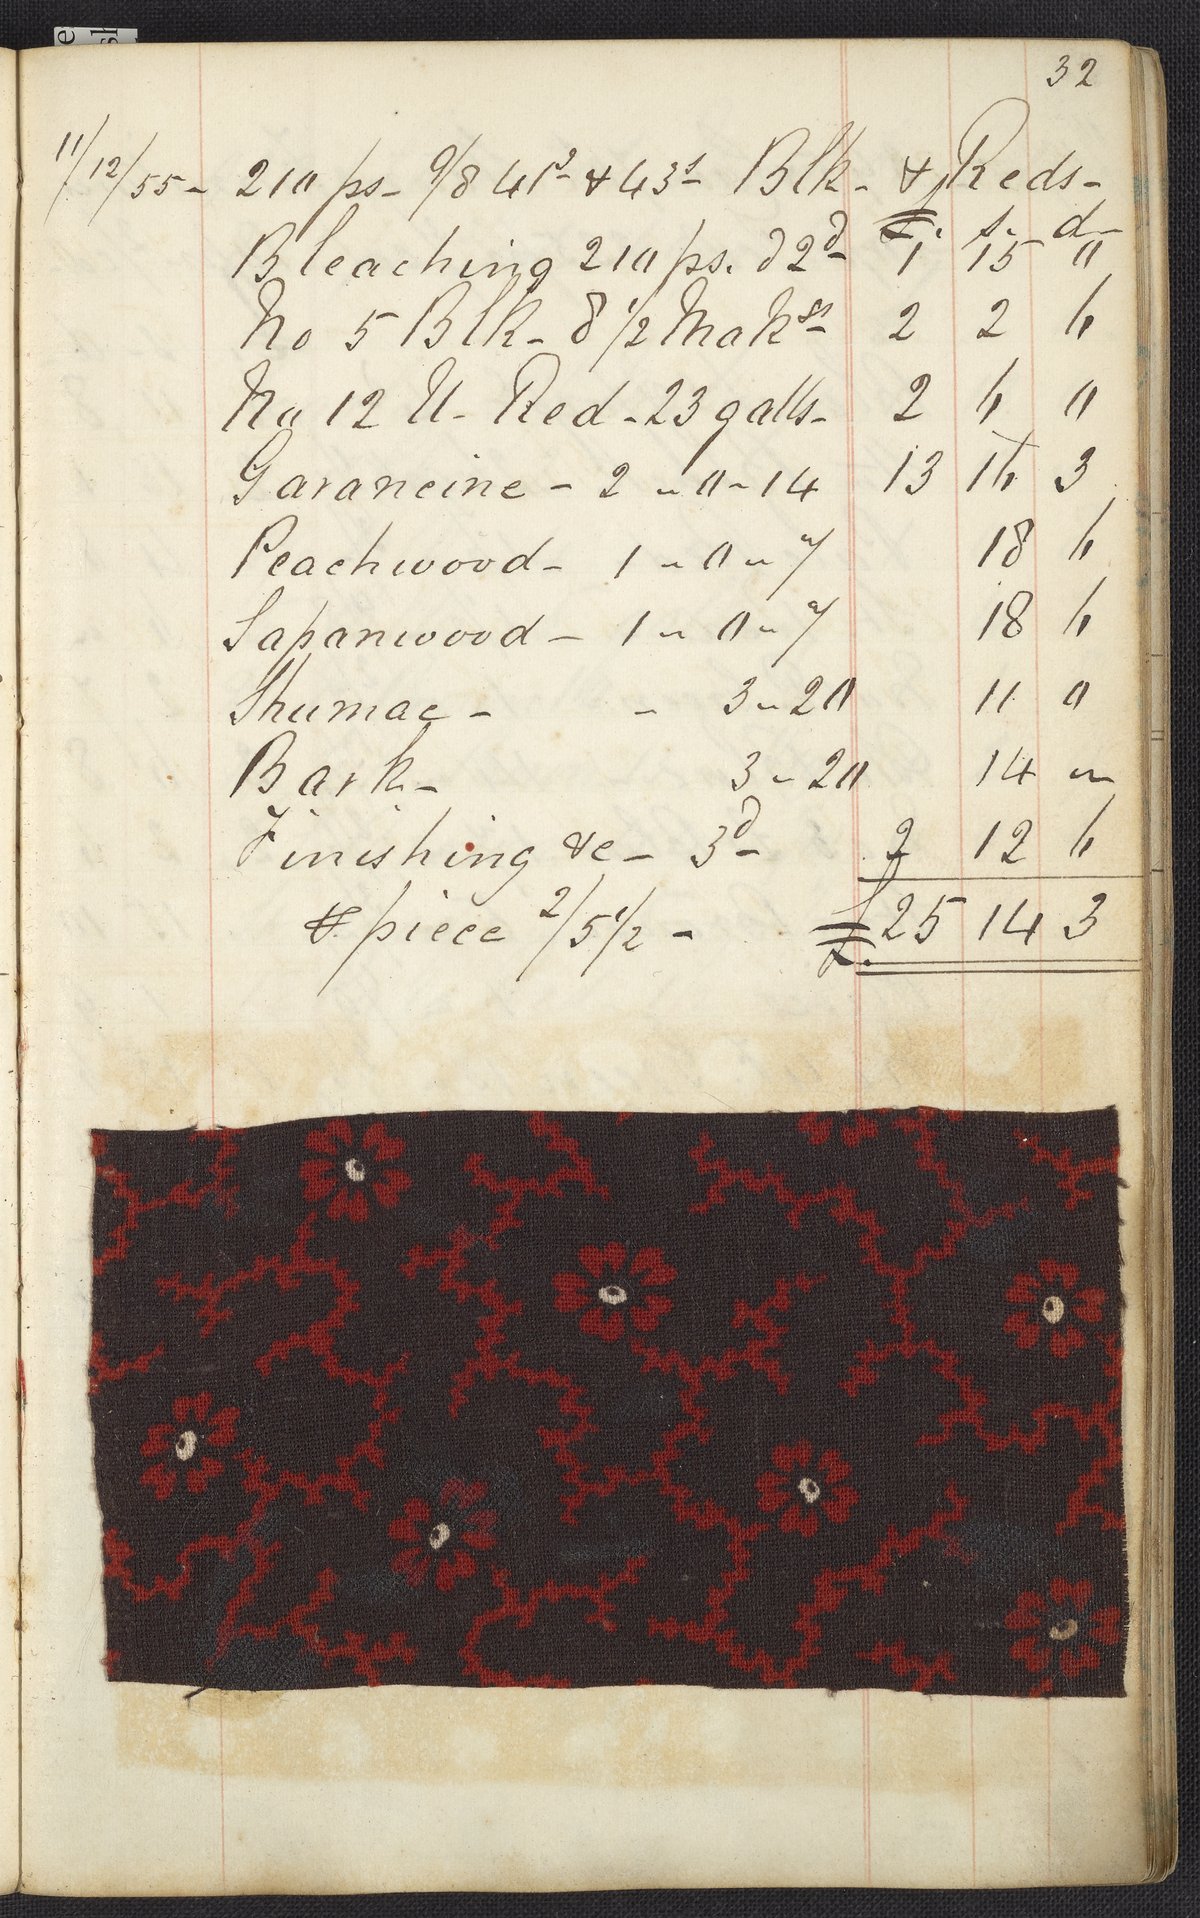 32
11/12/55 - 210 ps - 9/8 41s & 43s - Blk - & Reds -
£. s. d -
Bleaching 210 ps. @ 2d - 1 15 0
No 5 Blk - 8 1/2 2 2 6
No 12 U - Red - 23 galls - 2 6 0
Garancine - 2 - 0 - 14 13 16 3
Peachwood - 1 - 0 - 7 18 6
Sapanwood - 1 - 0 - 7 18 6
Shumac - - 3 - 20 11 0
Bark - 3 - 20 14 -
Finishing &c - 3d - 2 12 6
⅌ piece 2/5 1/2 - £25 14 3